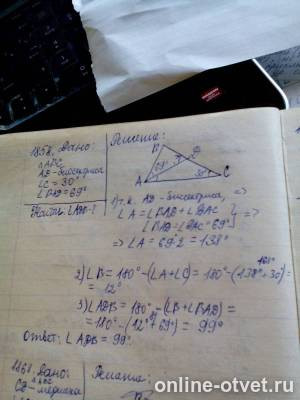 185. Дано:
△ABC
AD - биссектриса
∠C = 30°
∠BAD = 69°
Найти: ∠ADB - ?
Решение:
B
D
69°
30°
A
C
1) т.к. AD - биссектриса, =>
∠A = ∠BAD + ∠DAC
∠BAD = ∠DAC = 69°
} =>
=> ∠A = 69°·2 = 138°
2) ∠B = 180° - (∠A + ∠C) = 180° - (138° + 30°) =
168°
= 12°
3) ∠ADB = 180° - (∠B + ∠BAD) =
= 180° - (12° + 69°) = 99°
Ответ: ∠ADB = 99°.
186. Дано:
Решение:
CD - медиана
online-otvet.ru